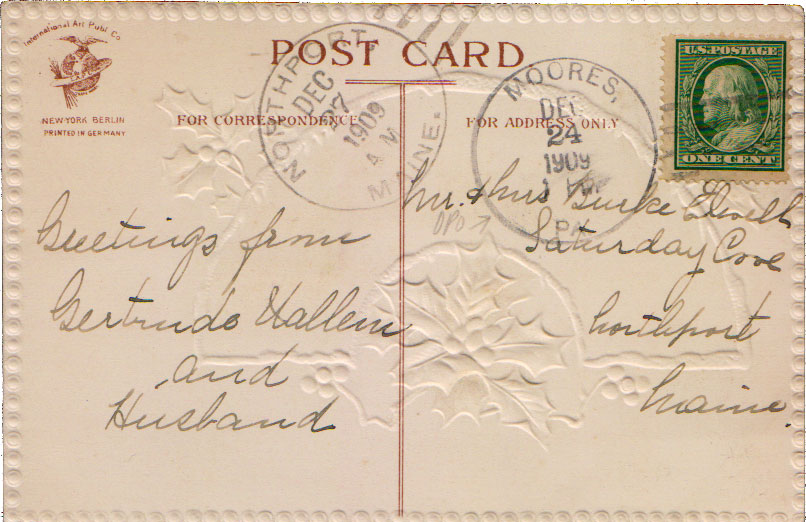 International Art Publ. Co.
NEW-YORK BERLIN
PRINTED IN GERMANY
POST CARD
FOR CORRESPONDENCE
FOR ADDRESS ONLY
NORTHPORT,
DEC
27
1909
A M
MAINE.
MOORES,
DEC
24
1909
PA
U.S. POSTAGE
ONE CENT
Greetings from
Gertrude Hallem
and
Husband
Mr. & Mrs Burke Elwell
DPO
Saturday Cove
Northport
Maine.